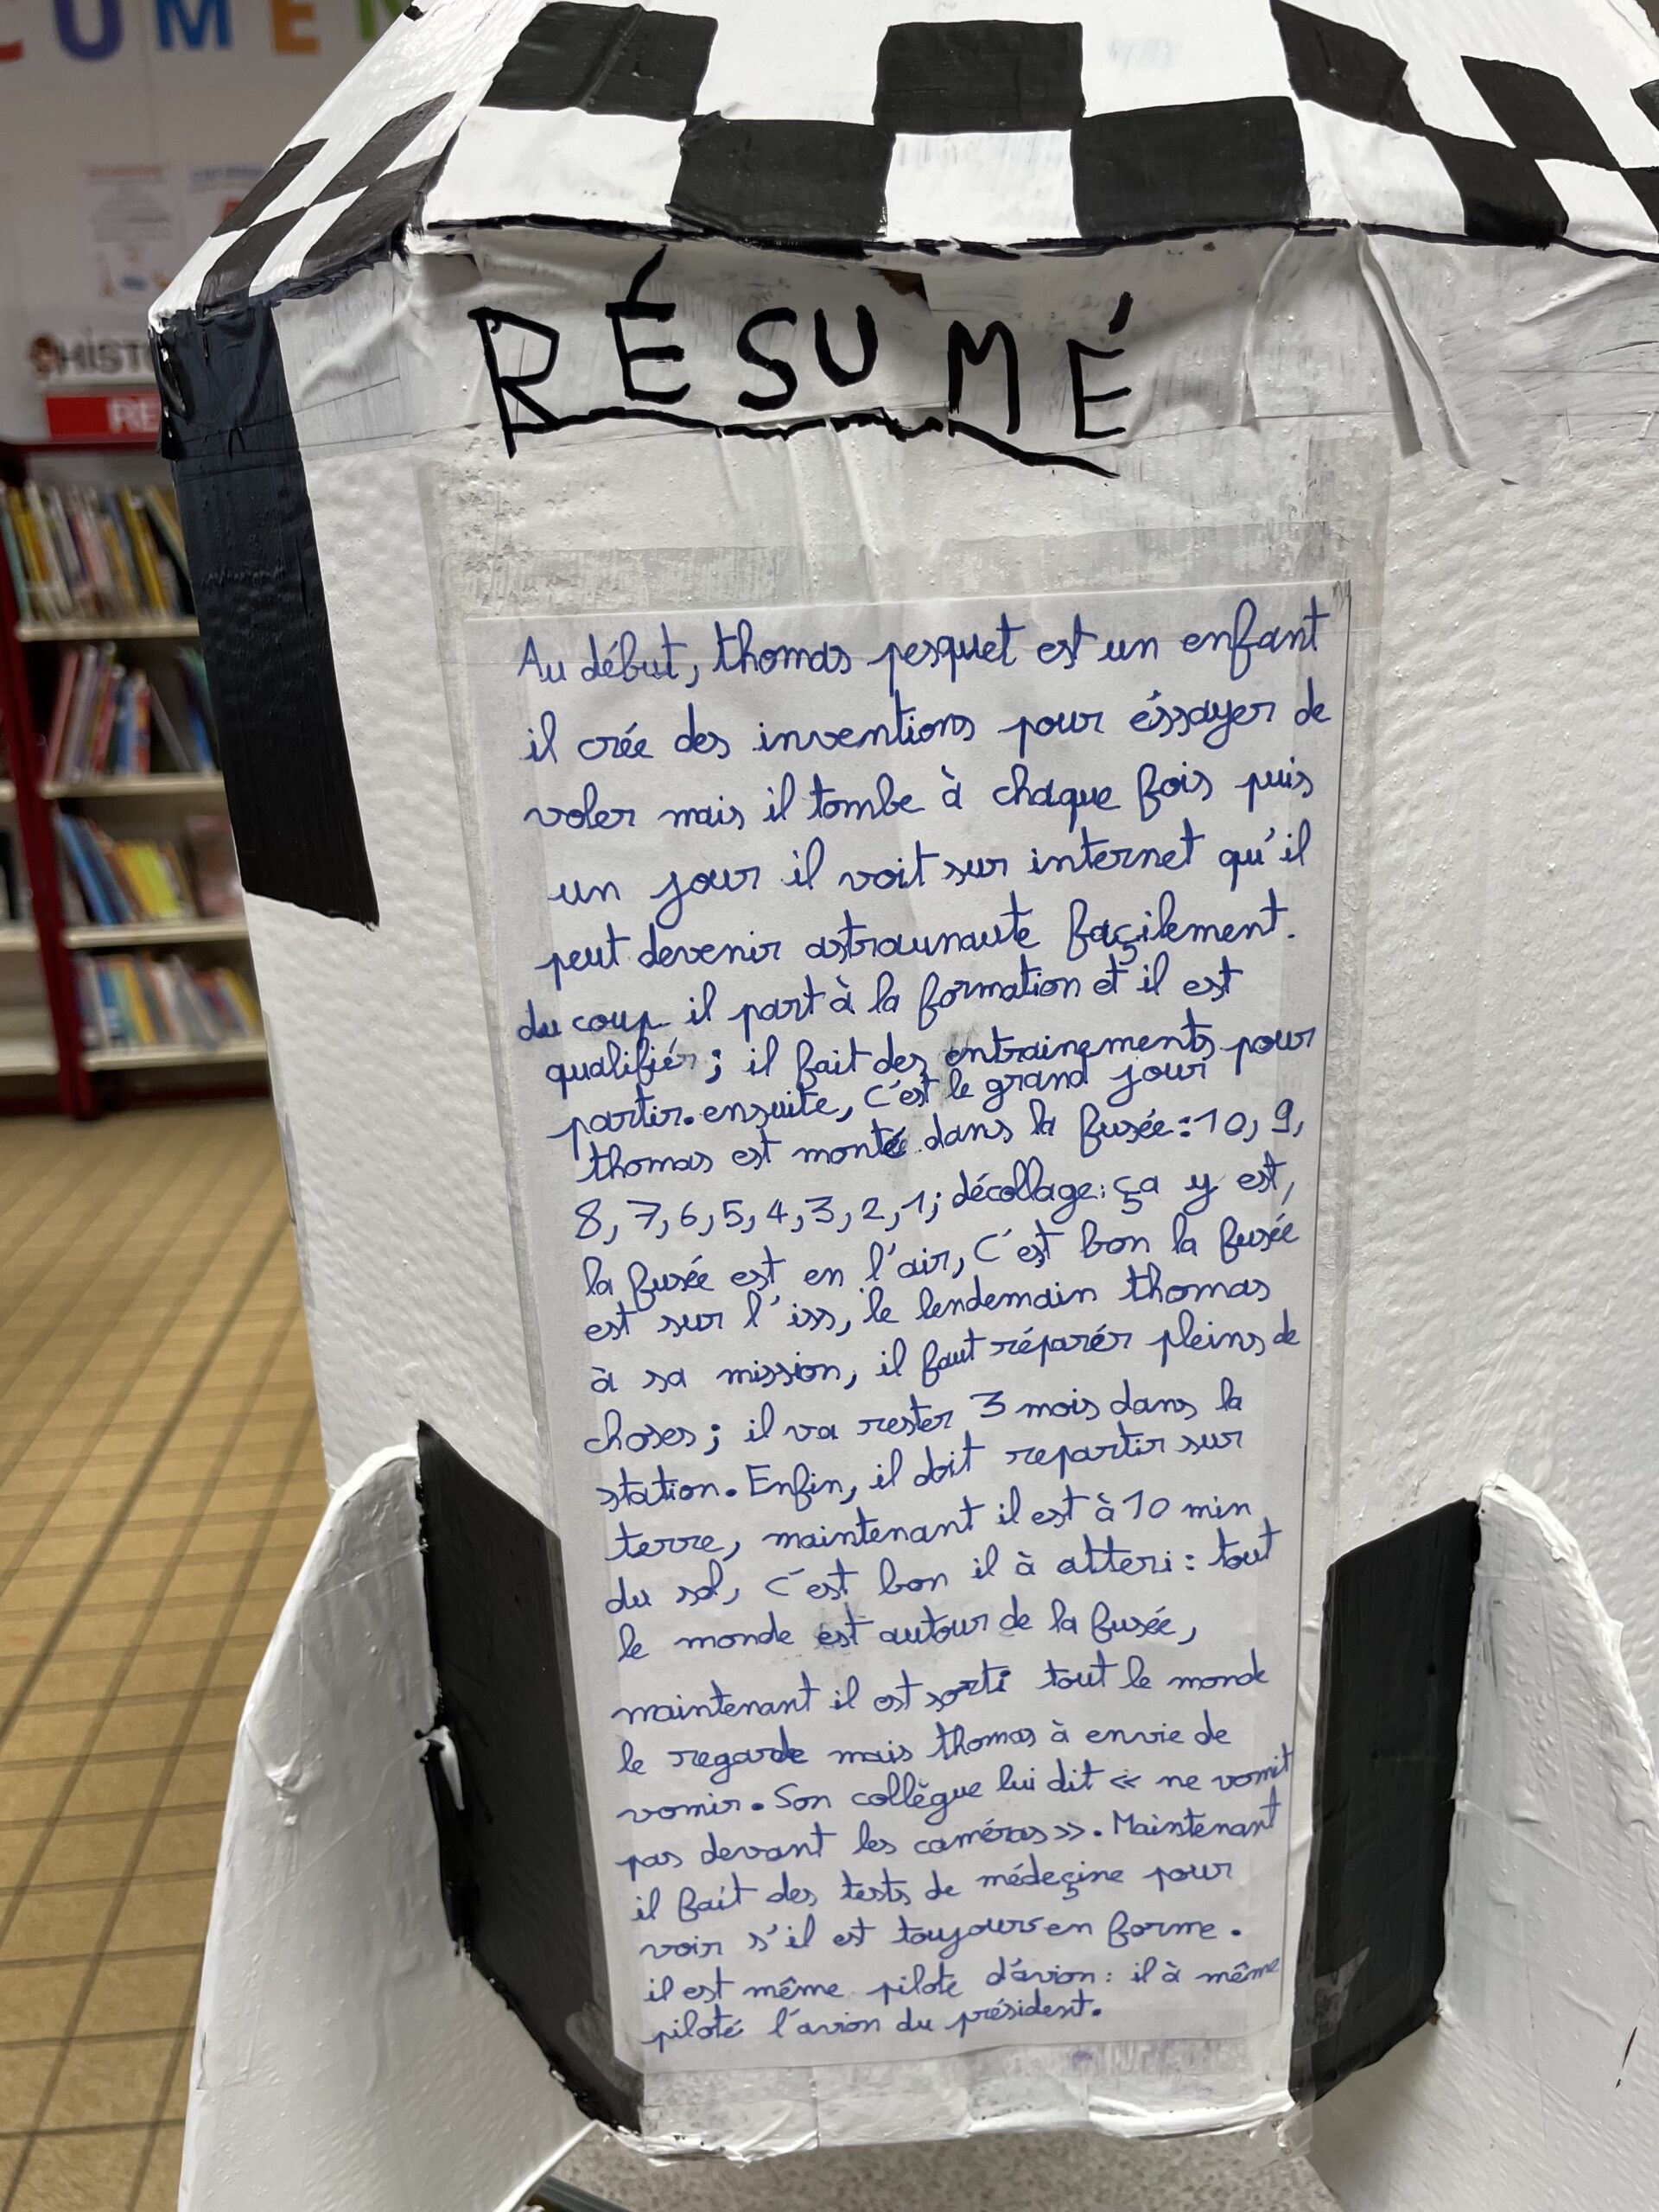 CUMEN
HISTO
RE
RÉSUMÉ
Au début, thomas pesquet est un enfant
il crée des inventions pour éssayer de
voler mais il tombe à chaque fois puis
un jour il voit sur internet qu'il
peut devenir astraunaute façilement.
du coup il part à la formation et il est
qualifiér ; il fait des entrainements pour
partir. ensuite, c'est le grand jour
thomas est monté dans la fusée : 10, 9,
8, 7, 6, 5, 4, 3, 2, 1; décollage: ça y est,
la fusée est en l'air, C'est bon la fusée
est sur l'iss, le lendemain thomas
à sa mission, il faut réparér pleins de
choses ; il va rester 3 mois dans la
station. Enfin, il doit repartir sur
terre, maintenant il est à 10 min
du sol, c'est bon il à atteri : tout
le monde est autour de la fusée,
maintenant il est sorti tout le monde
le regarde mais thomas à envie de
vomir. Son collègue lui dit « ne vomit
pas devant les caméras ». Maintenant
il fait des tests de médeçine pour
voir s'il est toujours en forme.
il est même pilote d'avion : il à même
piloté l'avion du président.